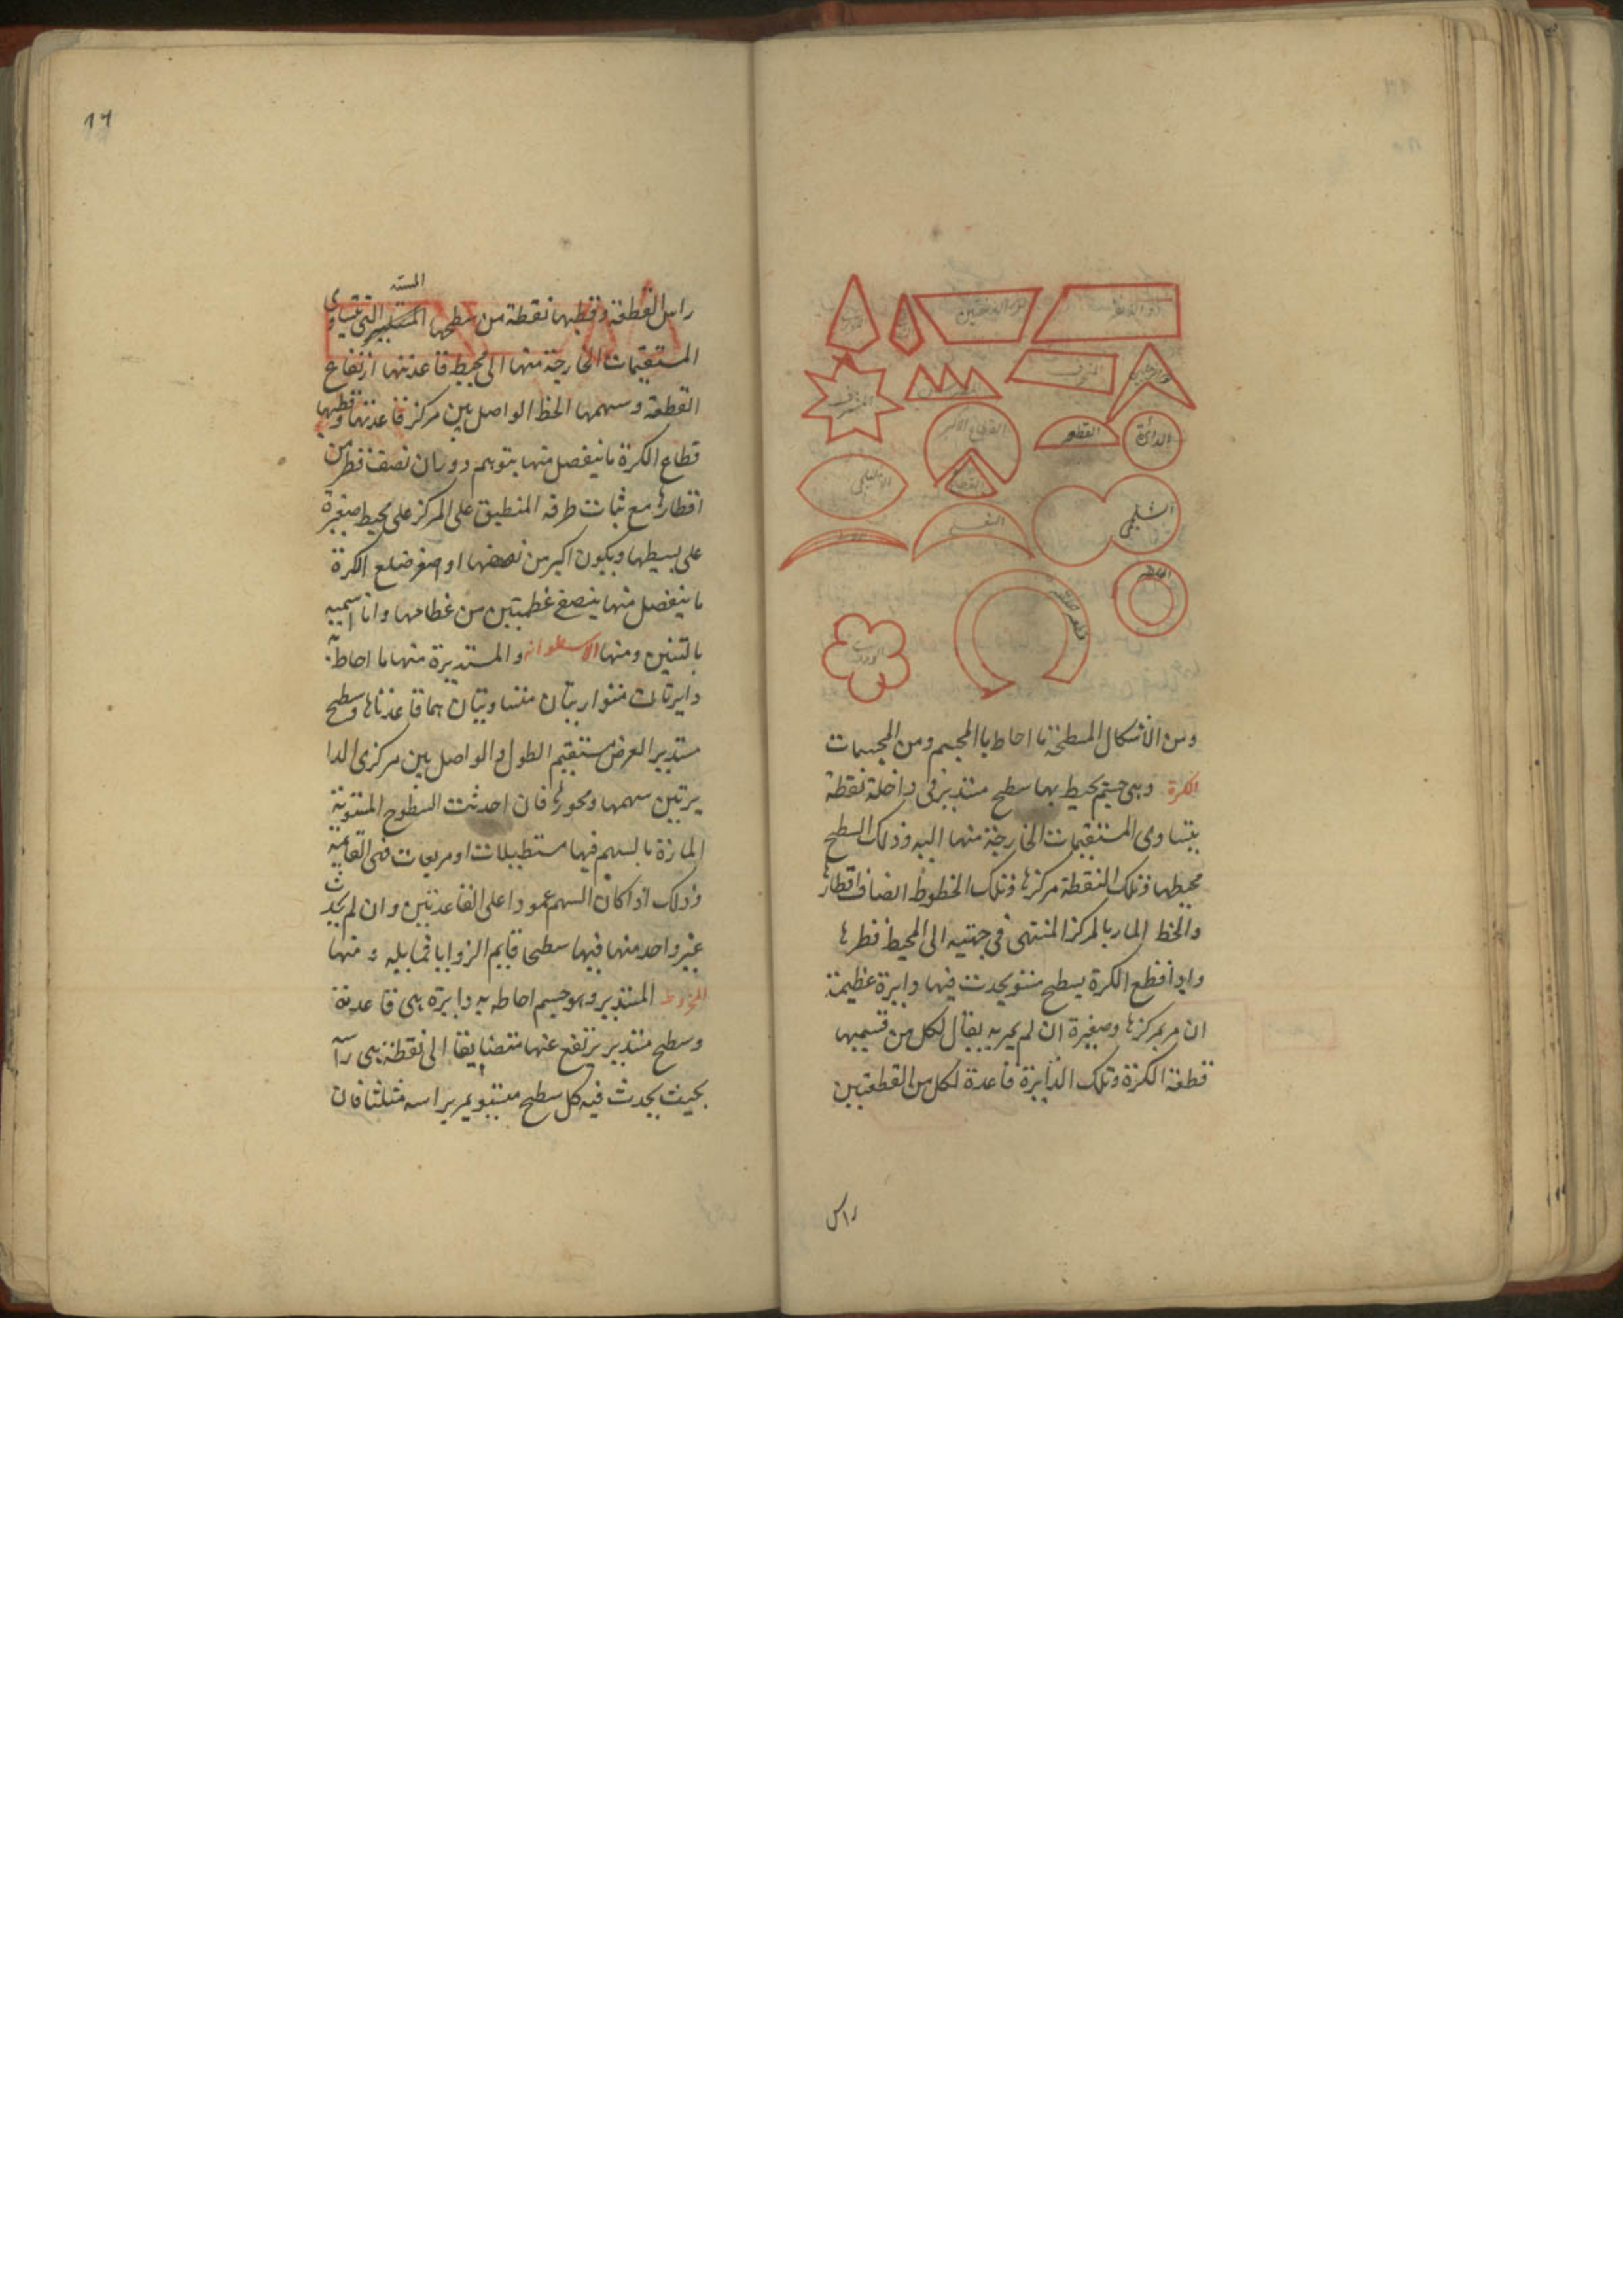 ذو الزنقة
ذو الزنقتين
المنحرف
الدائرة
القطعة
القطاع الاكبر
القطاع
الشلجمى
الاهليلجى
قطعة حلقة
ومن الاشكال المسطحة ما احاط بالمجسم ومن المجسمات
الكرة وهى جسم يحيط بها سطح مستدير فى داخله نقطة
يتساوى المستقيمات الخارجة منها اليه وذلك السطح
محيطها وتلك النقطة مركزها وتلك الخطوط انصاف اقطارها
والخط المار بالمركز المنتهى فى جهتيه الى المحيط قطرها
واذا قطع الكرة بسطح مستو يحدث فيها دايرة عظيمة
ان مر بمركزها وصغيرة ان لم يمر به يقال لكل من قسميها
قطعة الكرة وتلك الدايرة قاعدة لكل من القطعتين
راس
١٦
المسته
راس القطعة وقطبها نقطة من سطحها المستدير التى يتساوى
المستقيمات الخارجة منها الى محيط قاعدتها ارتفاع
القطعة وسهمها الخط الواصل بين مركز قاعدتها وقطبها
قطاع الكرة ما ينفصل منها بتوهم دوران نصف قطر من
اقطارها مع ثبات طرفه المنطبق على المركز على محيط صغيرة
على بسيطها ويكون اكبر من نصفها او اصغر ضلع الكرة
ما ينفصل منها بنصفى عظيمتين من عظامها وانا اسميه
بالتنين ومنها الاسطوانه والمستديرة منها ما احاط به
دايرتان متوازيتان متساويتان هما قاعدتاها وسطح
مستدير العرض مستقيم الطول والواصل بين مركزى الدا
يرتين سهمها ومحورها فان احدثت السطوح المستوية
المارة بالسهم فيها مستطيلات او مربعات فهى القايمة
وذلك اذا كان السهم عمودا على القاعدتين وان لم يحدث
غير واحد منها فيها سطحا قايم الزوايا فمايله ومنها
المخروط المستدير وهو جسم احاط به دايرة هى قاعدته
وسطح مستدير يرتفع عنها متضايقا الى نقطة هى راسه
بحيث يحدث فيه كل سطح مستو يمر براسه مثلثا فان